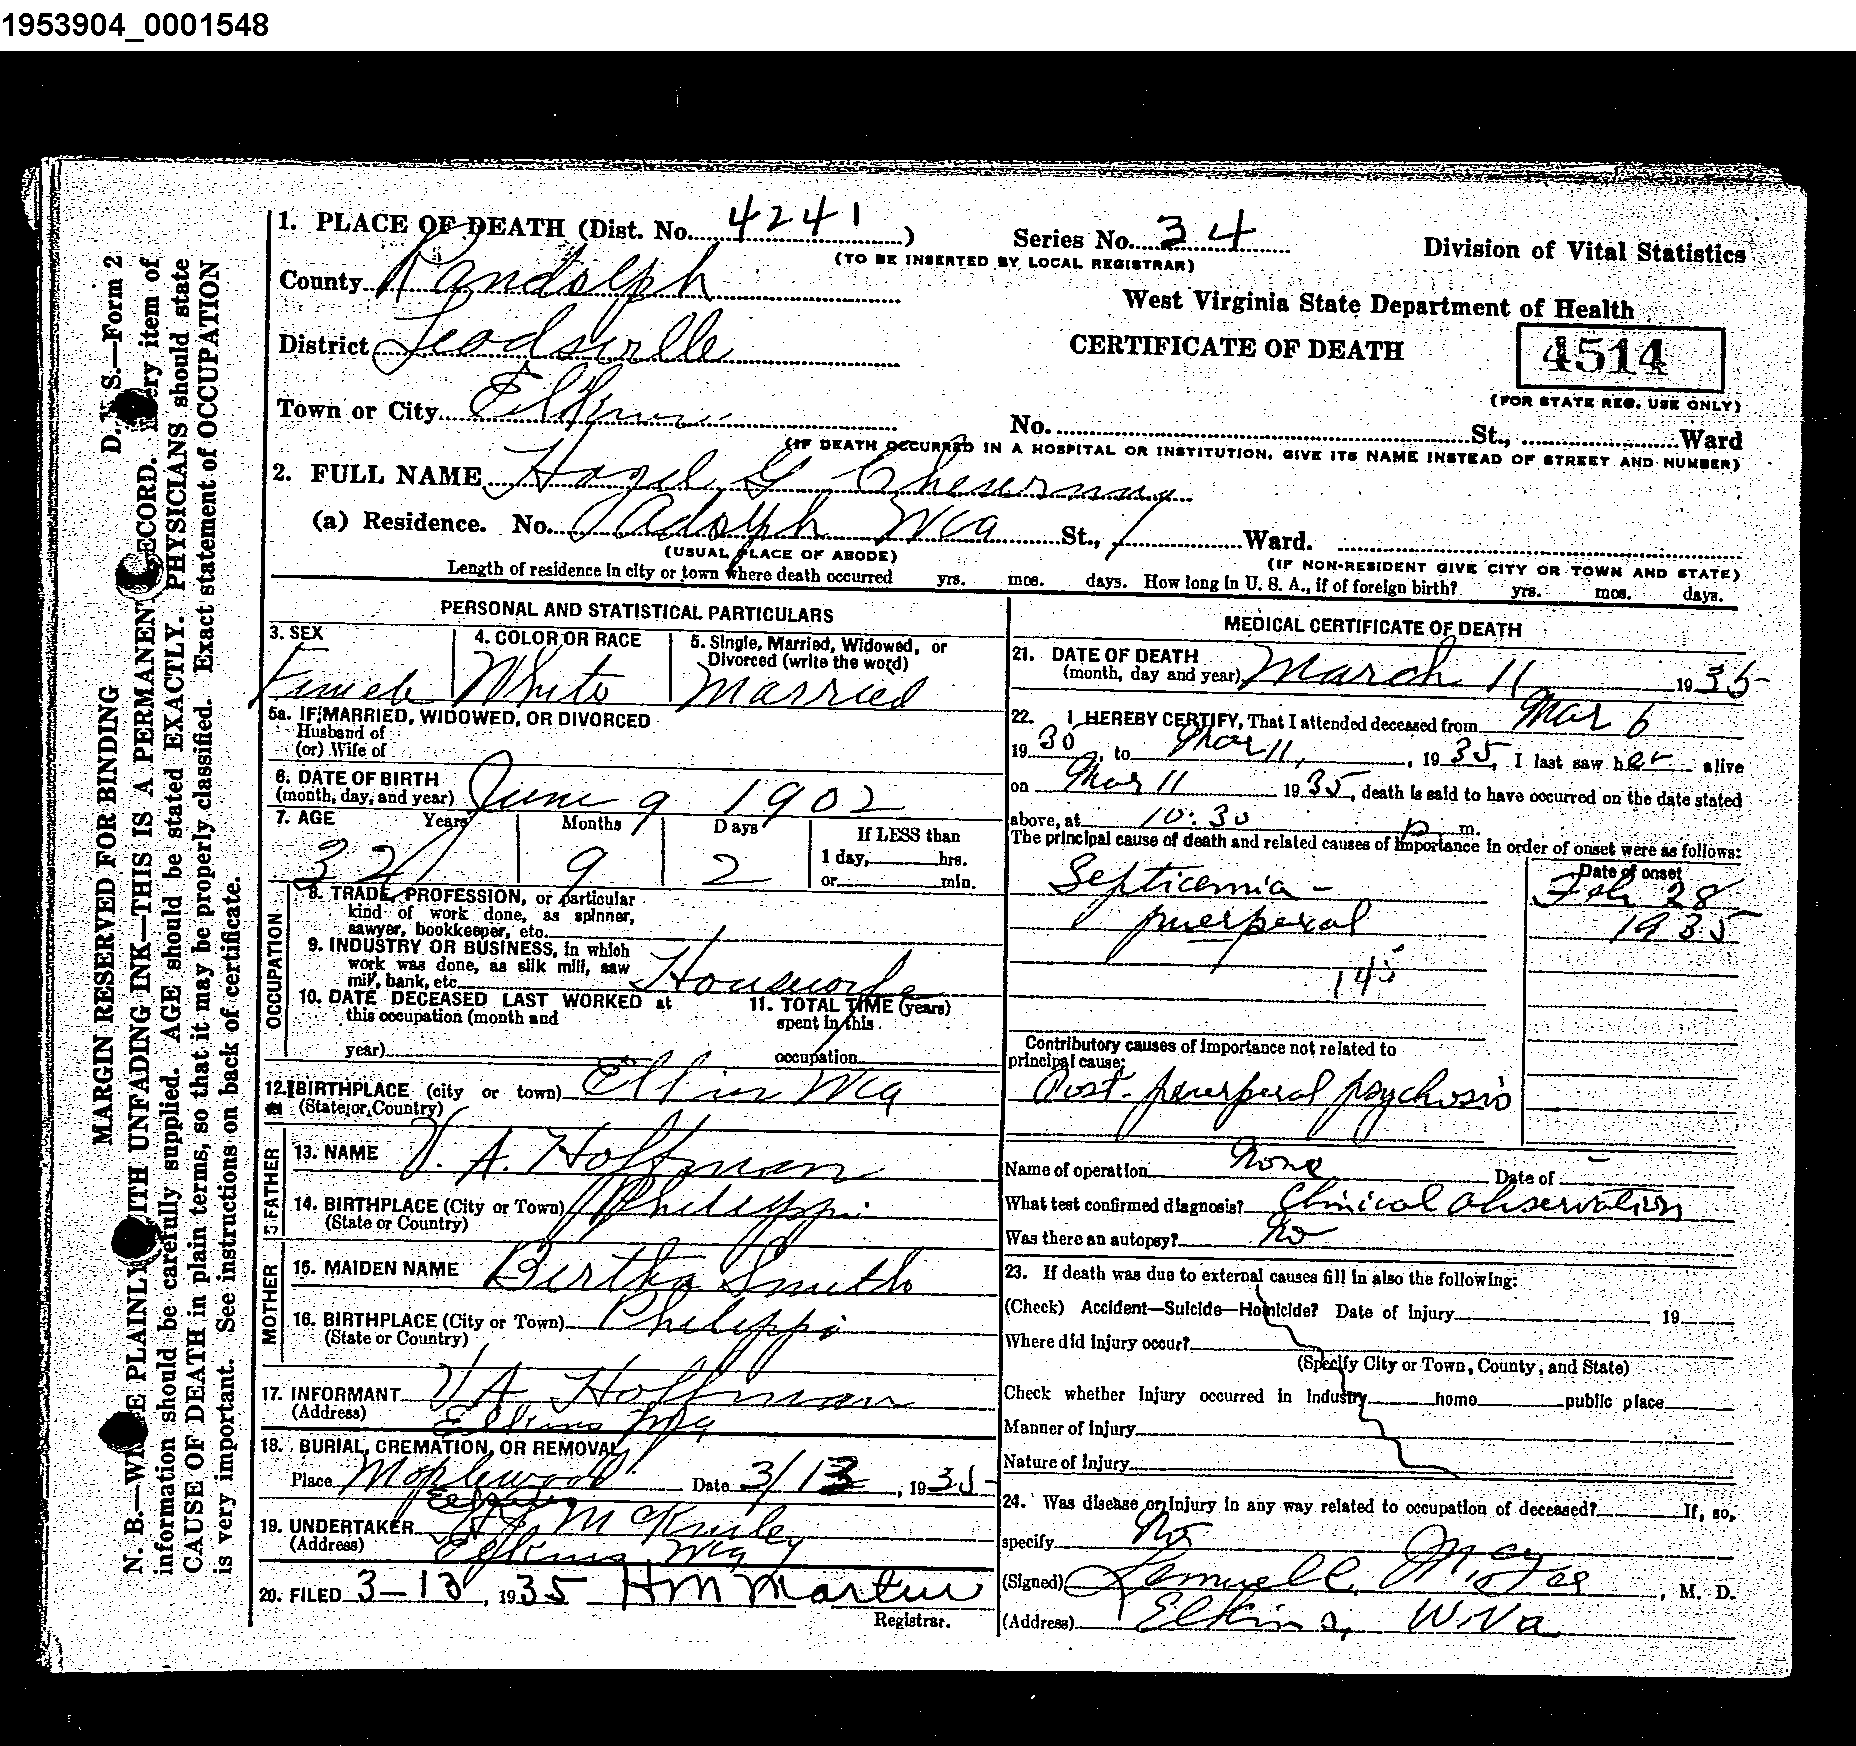 1953904_0001548
1. PLACE OF DEATH (Dist. No. 4241 )
Series No. 34
(TO BE INSERTED BY LOCAL REGISTRAR)
Division of Vital Statistics
County Randolph
West Virginia State Department of Health
District Leadsville
CERTIFICATE OF DEATH
4514
(FOR STATE REG. USE ONLY)
Town or City Elkins
No. St., Ward
(IF DEATH OCCURRED IN A HOSPITAL OR INSTITUTION, GIVE ITS NAME INSTEAD OF STREET AND NUMBER)
2. FULL NAME Hazel G
(a) Residence. No. Adolph Wva St., Ward.
(USUAL PLACE OF ABODE)
(IF NON-RESIDENT GIVE CITY OR TOWN AND STATE)
Length of residence in city or town where death occurred yrs. mos. days. How long in U. S. A., if of foreign birth? yrs. mos. days.
PERSONAL AND STATISTICAL PARTICULARS
3. SEX
Female
4. COLOR OR RACE
White
5. Single, Married, Widowed, or
Divorced (write the word)
Married
5a. IF MARRIED, WIDOWED, OR DIVORCED
Husband of
(or) Wife of
6. DATE OF BIRTH
(month, day, and year) June 9 1902
7. AGE Years Months Days If LESS than
32 9 2 1 day, hrs.
or min.
OCCUPATION
8. TRADE, PROFESSION, or particular
kind of work done, as spinner,
sawyer, bookkeeper, etc.
9. INDUSTRY OR BUSINESS, in which
work was done, as silk mill, saw
mill, bank, etc. Housework
10. DATE DECEASED LAST WORKED at
this occupation (month and
year)
11. TOTAL TIME (years)
spent in this
occupation
12. BIRTHPLACE (city or town) Elkins Wva
(State or Country)
FATHER
13. NAME V. A. Hoffman
14. BIRTHPLACE (City or Town) Philippi
(State or Country)
MOTHER
15. MAIDEN NAME Bertha Smith
16. BIRTHPLACE (City or Town) Philippi
(State or Country)
17. INFORMANT V A Hoffman
(Address) Elkins Wva
18. BURIAL, CREMATION, OR REMOVAL
Place Maplewood Date 3/13, 1935
19. UNDERTAKER McKinley
(Address) Elkins, Wva
20. FILED 3-13, 1935 H M Martin
Registrar.
MEDICAL CERTIFICATE OF DEATH
21. DATE OF DEATH
(month, day and year) March 11 1935
22. I HEREBY CERTIFY, That I attended deceased from Mar 6
1930, to Mar 11, , 1935, I last saw her alive
on Mar 11 1935, death is said to have occurred on the date stated
above, at 10:30 p. m.
The principal cause of death and related causes of importance in order of onset were as follows:
Date of onset
Septicemia - Feb 28
puerperal 1935
145
Contributory causes of importance not related to
principal cause:
Post-puerperal psychosis
Name of operation None Date of -
What test confirmed diagnosis? Clinical observation
Was there an autopsy? No
23. If death was due to external causes fill in also the following:
(Check) Accident—Suicide—Homicide? Date of Injury 19
Where did injury occur?
(Specify City or Town, County, and State)
Check whether Injury occurred in Industry home public place
Manner of Injury
Nature of Injury
24. Was disease or injury in any way related to occupation of deceased? If, so,
specify No
(Signed) , M. D.
(Address) Elkins, W.Va
D. V. S.—Form 2
MARGIN RESERVED FOR BINDING
N. B.—WRITE PLAINLY WITH UNFADING INK—THIS IS A PERMANENT RECORD. Every item of
information should be carefully supplied. AGE should be stated EXACTLY. PHYSICIANS should state
CAUSE OF DEATH in plain terms, so that it may be properly classified. Exact statement of OCCUPATION
is very important. See instructions on back of certificate.